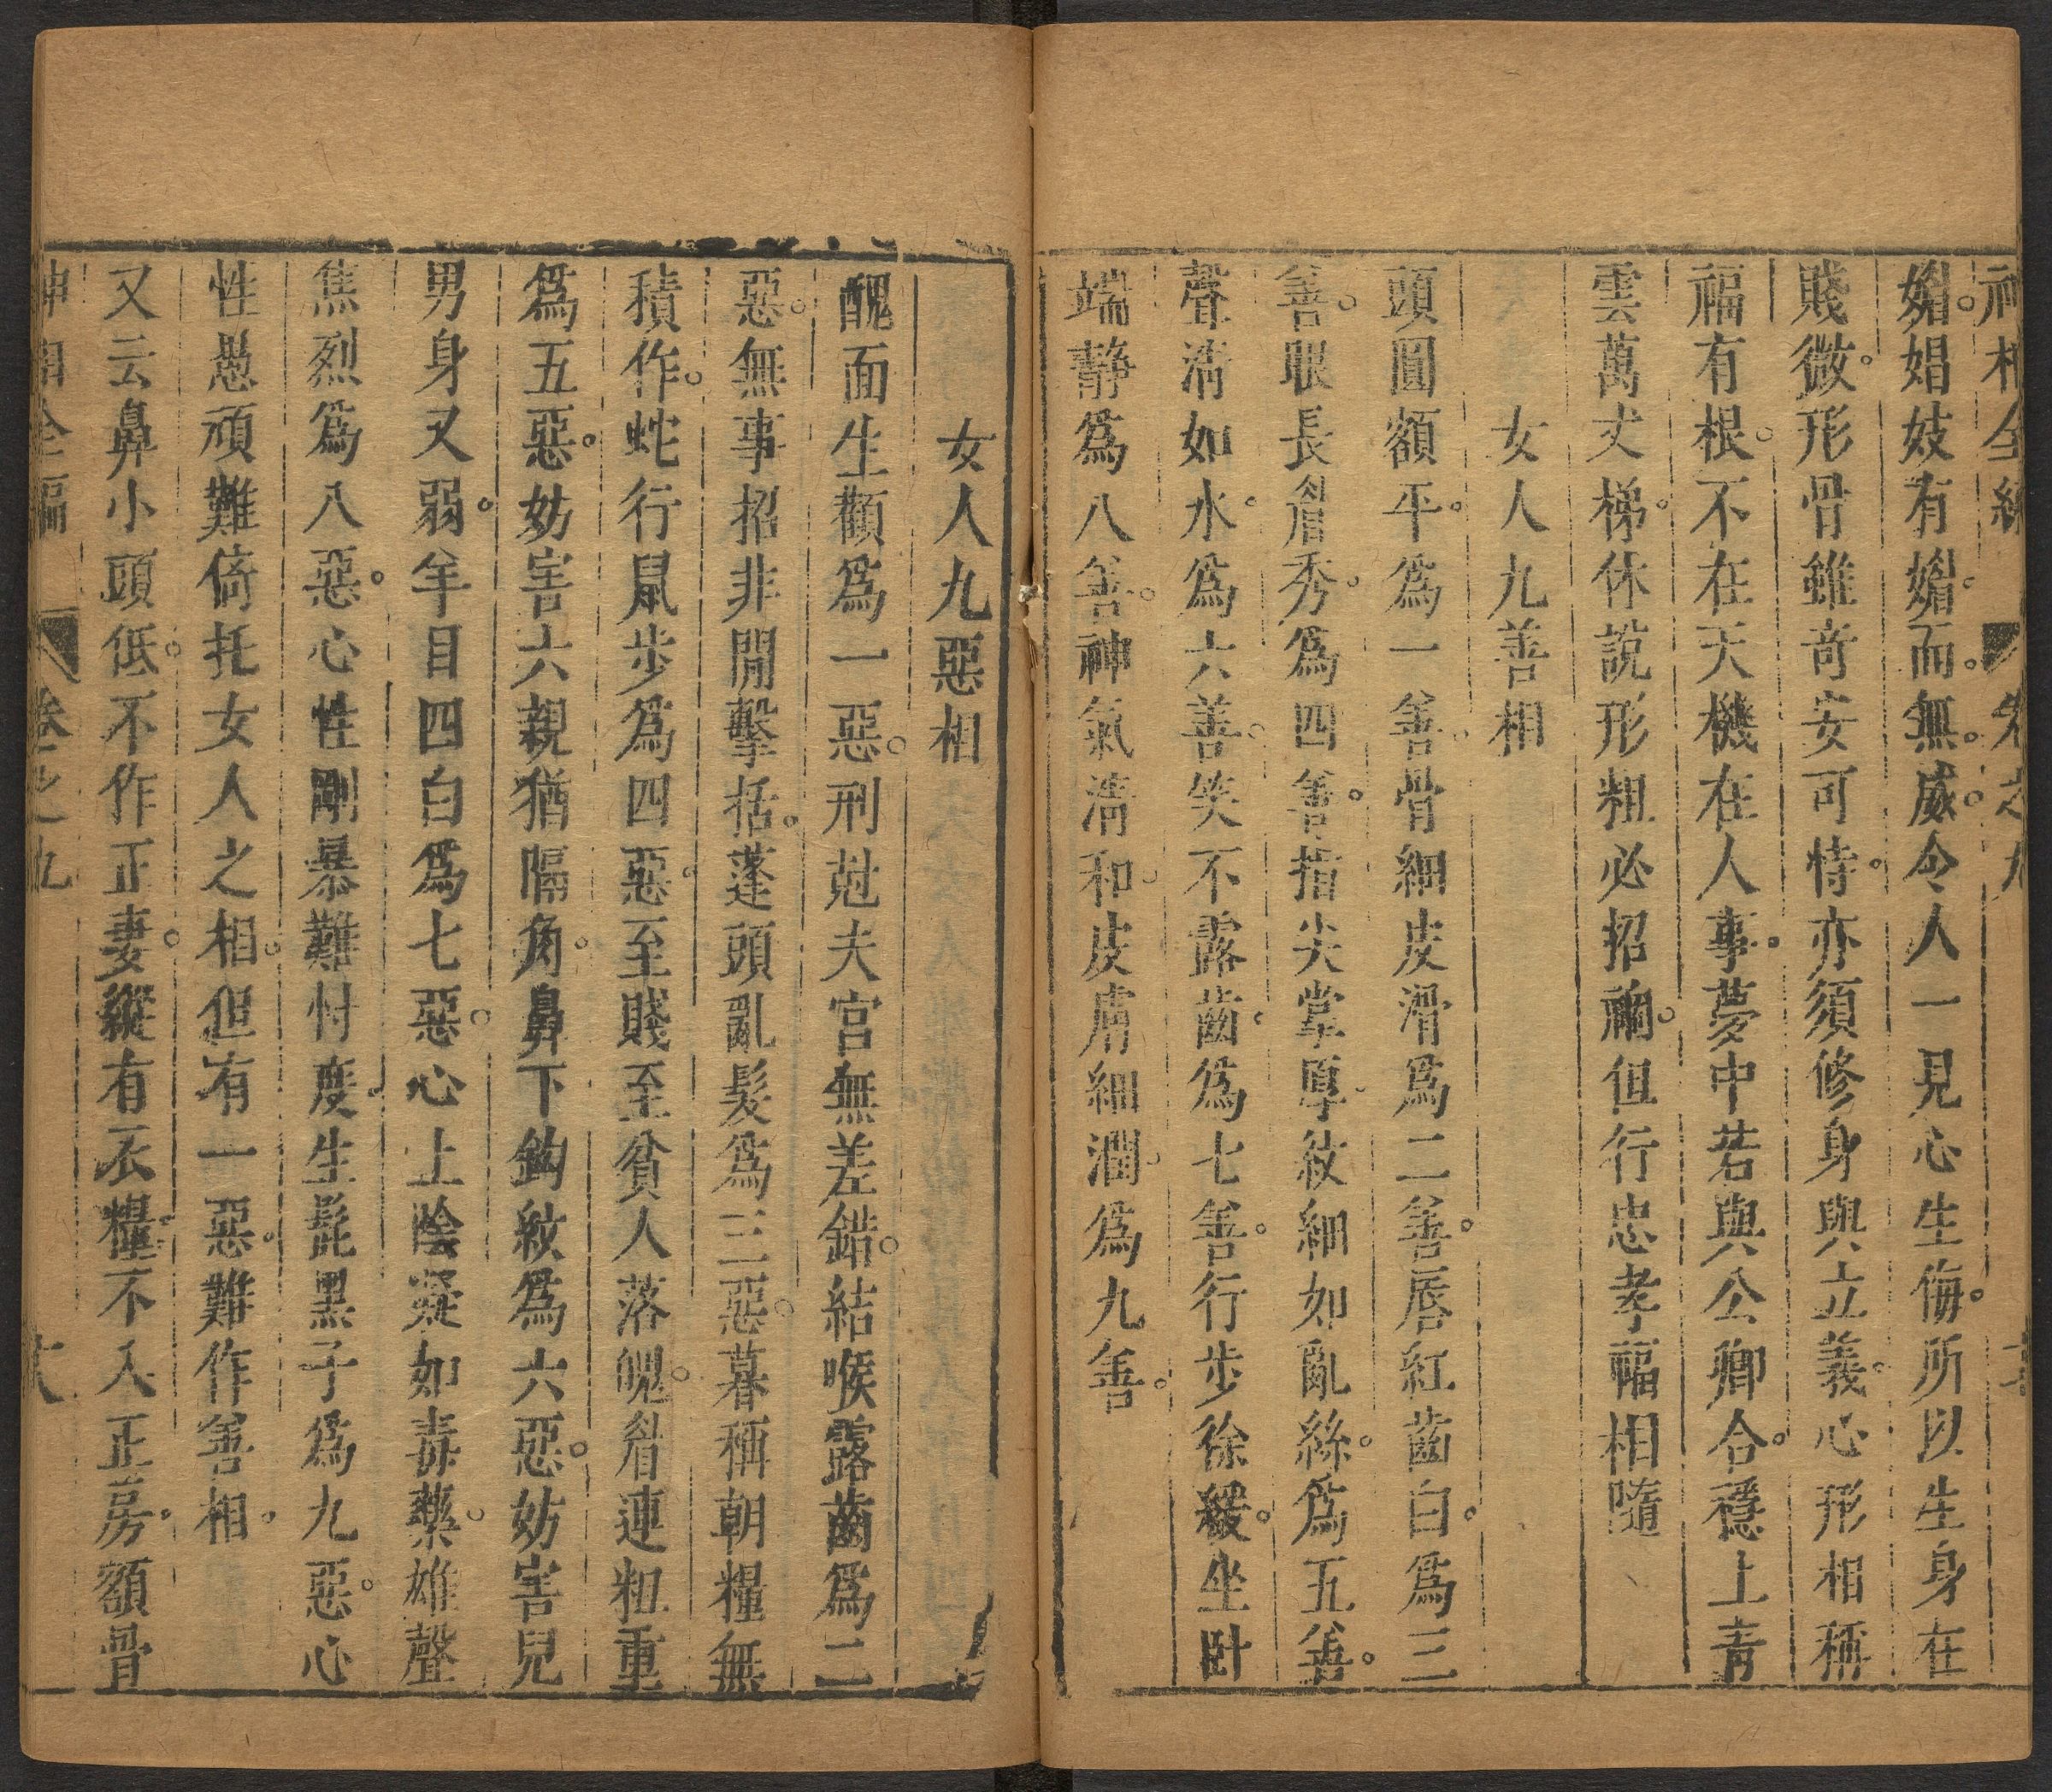 神相全編 卷之九
媚娼妓有媚而無威令人一見心生侮所以生身在
賤微形骨雖竒安可恃亦須修身與立義心形相稱
福有根不在天機在人事夢中若與公卿合穩上青
雲萬丈梯休說形粗必招禍但行忠孝福相隨
女人九善相
頭圓額平爲一善骨細皮滑爲二善唇紅齒白爲三
善眼長眉秀爲四善指尖掌厚紋細如亂絲爲五善
聲清如水爲六善笑不露齒爲七善行步徐緩坐卧
端靜爲八善神氣清和皮膚細潤爲九善
女人九惡相
醜面生顴爲一惡刑尅夫宮無差錯結喉露齒爲二
惡無事招非閒擊括蓬頭亂髮爲三惡暮稱朝糧無
積作蛇行鼠步爲四惡至賤至貧人落魄眉連粗重
爲五惡妨害六親猶隔角鼻下鈎紋爲六惡妨害兒
男身又弱羊目四白爲七惡心上陰凝如毒藥雄聲
焦烈爲八惡心性剛暴難忖度生髭黑子爲九惡心
性愚頑難倚托女人之相但有一惡難作善相
又云鼻小頭低不作正妻縱有衣糧不入正房額骨
神相全編 卷之九 十八